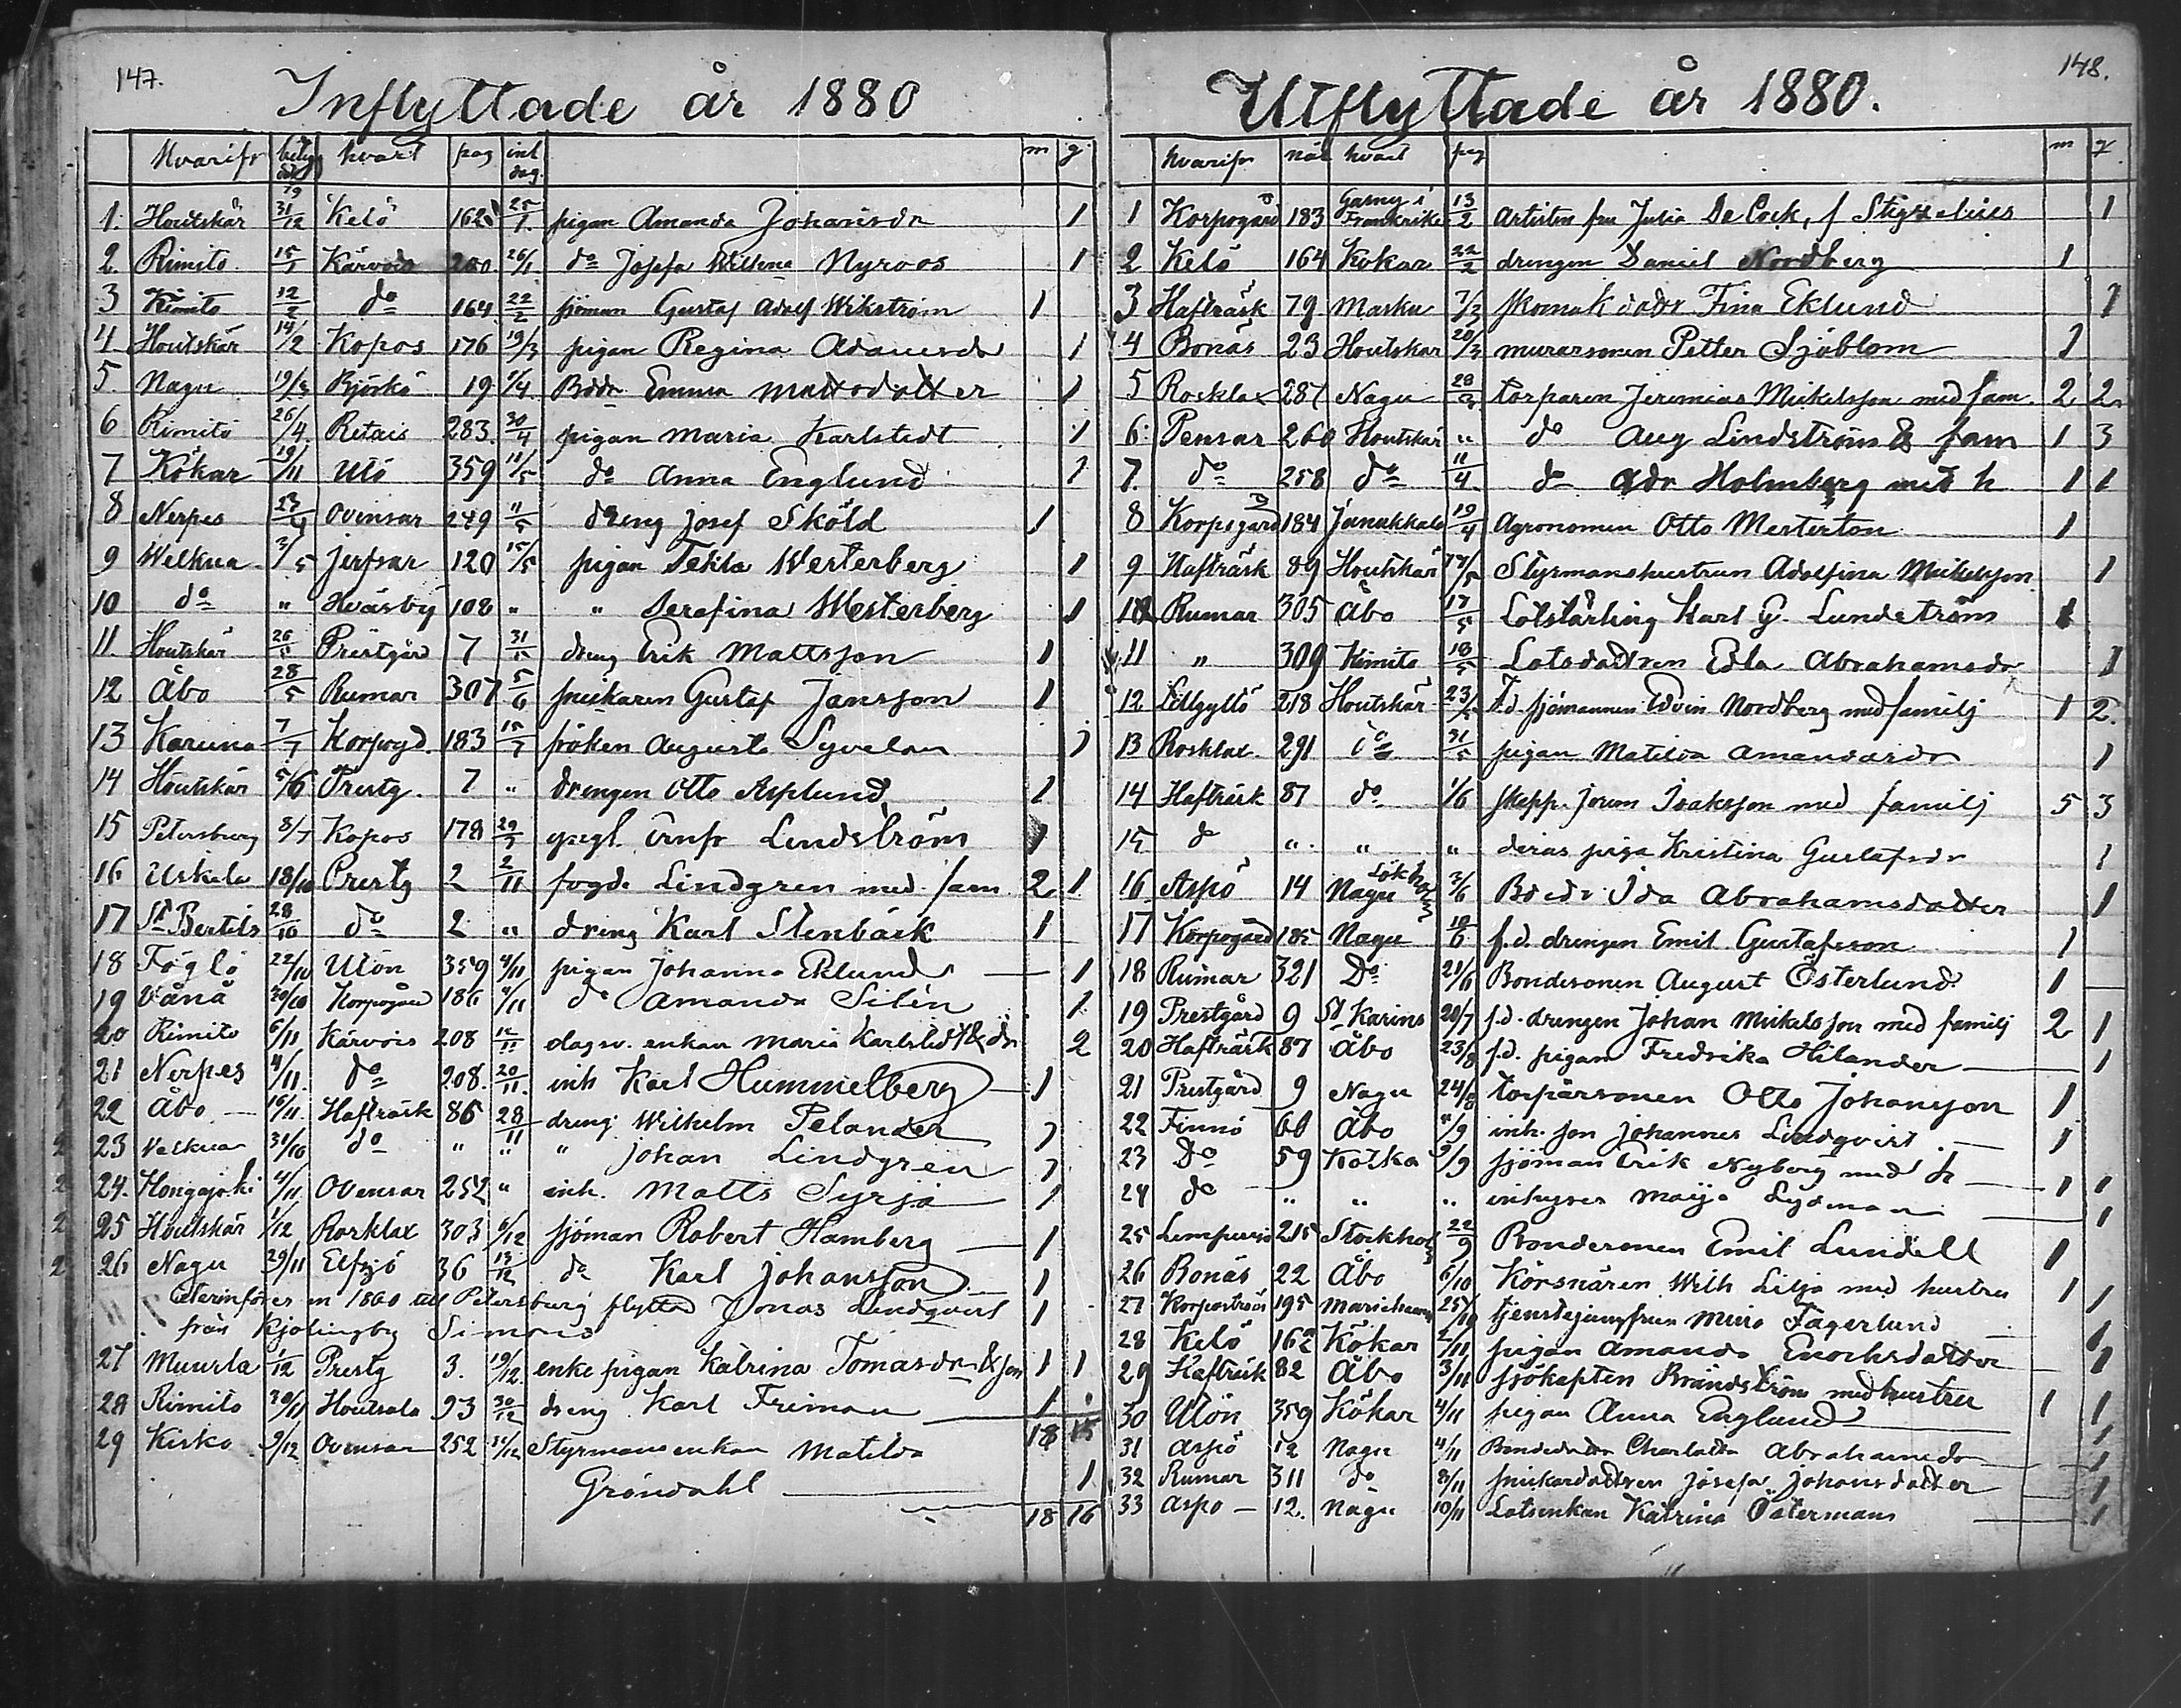 147.
Inflyttade år 1880
Hvarifr hvart pag inl dag. m q
1. Houtskär 31/12 79 Kelö 162 25/1. pigan Amanda Johansdr 1
2. Rimito 15/1 Kärvois 200 26/1 do Josefa Nyroos 1
3 Kimito 12/2 do 164 22/2 sjöman Gustaf Adolf Wikström 1
4 Houtskär 14/2 Kopos 176 19/3 pigan Regina Adamsdr 1
5. Nagu 19/3 Björkö 19 1/4 Bddr Emma Mattsdotter 1
6 Rimito 26/4. Retais 283. 30/4 pigan Maria Karlstedt 1
7 Kökar 19/11 Utö 359 11/5 do Anna Englund 1
8 Nerpes 23/4 Ovensar 249 11/5 dreng Josef Sköld 1
9 Welkua 3/5 Jerfsar 120 15/5 pigan Tekla Westerberg 1
10 do " Hväsby 108 " " Serafina Westerberg 1
11. Houtskär 26/5 Prestgård 7 31/5 dreng Erik Mattsson 1
12 Åbo 28/5 Rumar 307 5/6 snickaren Gustaf Jansson 1
13 Karuna 7/7 Korpogd. 183 15/7 fröken Augusta Syvelan 1
14 Houtskär 5/6 Prestg. 7 " drengen Otto Asplund 1
15 Petersburg 8/7 Kopos 178 29/7 Lindström 1
16 Uskela 18/10 Prestg 2 2/11 fogde Lindgren med fam. 2 1
17 St Bertils 28/10 do 2 " dreng Karl Stenbäck 1
18 Föglö 22/10 Utön 359 4/11 pigan Johanna Eklund 1
19 Vånå 20/10 Korpogård 186 4/11 do Amanda Silén 1
20 Rimito 6/11 Kärvois 208 12/11 dagsv. enkan Maria Karlstedt & dr 2
21 Nerpes 4/11. do 208. 20/11. inh Karl Hummelberg 1
22 Åbo 16/11. Hafträsk 86 28/11 dreng Wilhelm Pelander 1
23 Velkua 31/10 do " " " Johan Lindgren 1
24. Hongojoki 4/11 Ovensar 252 " inh. Matts Syrjä 1
25 Houtskär 1/12 Rosklax 303 6/12 sjöman Robert Hamberg 1
26 Nagu 29/11 Elfsjö 36 13/12 do Karl Johansson 1
återinföres en 1860 till Petersburg flyttad Jonas Lindqvist 1
från Kjolingby Simons
27 Muurla 1/12 Prestg 3. 19/12. enke pigan Katrina Tomasdr & son 1 1
28 Rimito 30/11 Houtsala 93 30/12 dreng Karl Friman 1
18 15
29 Kisko 9/12 Ovensar 252 31/12 Styrmansenkan Matilda
Gröndahl 1
18 16
148.
Utflyttade år 1880.
hvarifr när hvart pag m q.
1 Korpogård 183 Garny i Frankrike 13/2 artisten fru Julia De Cock, f Stigzelius 1
2 Kelö 164 Kökar 22/2 drengen Daniel Nordberg 1
3 Hafträsk 79 Masku 7/3 skomak dottr Fina Eklund 1
4 Bonäs 23 Houtskär 20/3 murarsonen Petter Sjöblom 1
5 Rosklax 287 Nagu 28/3 torparen Jeremias Mickelsson med fam. 2 2
6 Pensar 260 Houtskär " do Aug Lindström & fam 1 3
7. do 258 do 11/4 do Adr Holmberg med h 1 1
8 Korpogård 184 Janakkala 19/4 Agronomen Otto Merterton 1
9 Hafträsk 89 Houtskär 14/5 Styrmanshustrun Adolfina Mickelsson 1
10 Rumar 305 Åbo 17/5 Lotslärling Karl G. Lundström 1
11 " 309 Kimito 18/5 Lotsdottren Edla Abrahamsdr 1
12 Lillgyltö 218 Houtskär 23/5 F.d. sjömannen Edvin Nordberg med familj 1 2.
13 Rosklax 291 do 31/5 pigan Matilda Amandasdr 1
14 Hafträsk 87 do 1/6 skepp. Joum Isaksson med familj 5 3
15 do " " " deras piga Kristina Gustafsdr 1
16 Aspö 14 Nagu Lökholm 3/6 Bdedr Ida Abrahamsdotter 1
17 Korpogård 185 Nagu 18/6 f.d. drengen Emil Gustafsson 1
18 Rumar 321 Do 21/6 Bondesonen August Österlund 1
19 Prestgård 9 St Karins 20/7 f.d. drengen Johan Mickelsson med familj 2 1
20 Hafträsk 87 Åbo 23/8 f.d. pigan Fredrika Hilander 1
21 Prestgård 9 Nagu 24/8 torparsonen Otto Johansson 1
22 Finnö 60 Åbo 4/9 inh. son Johannes Lindqvist 1
23 Do 59 Kotka 9/9 sjöman Erik Nyberg med h 1 1
24 do " " " inhyses Maija Sydman 1
25 215 Stockholm 22/9 Bondesonen Emil Lundell 1
26 Bonäs 22 Åbo 6/10 Körsnären Wilh Lilja med hustru 1 1
27 Korpoström 195 Mariehamn 25/10 tjenstejungfrun Mina Fagerlund 1
28 Kelö 162 Kökar 2/11 pigan Amanda Enochsdotter 1
29 Hafträsk 82 Åbo 3/11 sjökapten Brandström med hustru 1 1
30 Utön 359 Kökar 4/11 pigan Anna Englund 1
31 Aspö 12 Nagu 4/11 Bondedottr Charlotta Abrahamsdr 1
32 Rumar 311 do 8/11 snickardottren Josefa Johansdotter 1
33 Aspo 12. Nagu 10/11 Lotsenkan Katrina Östermans 1